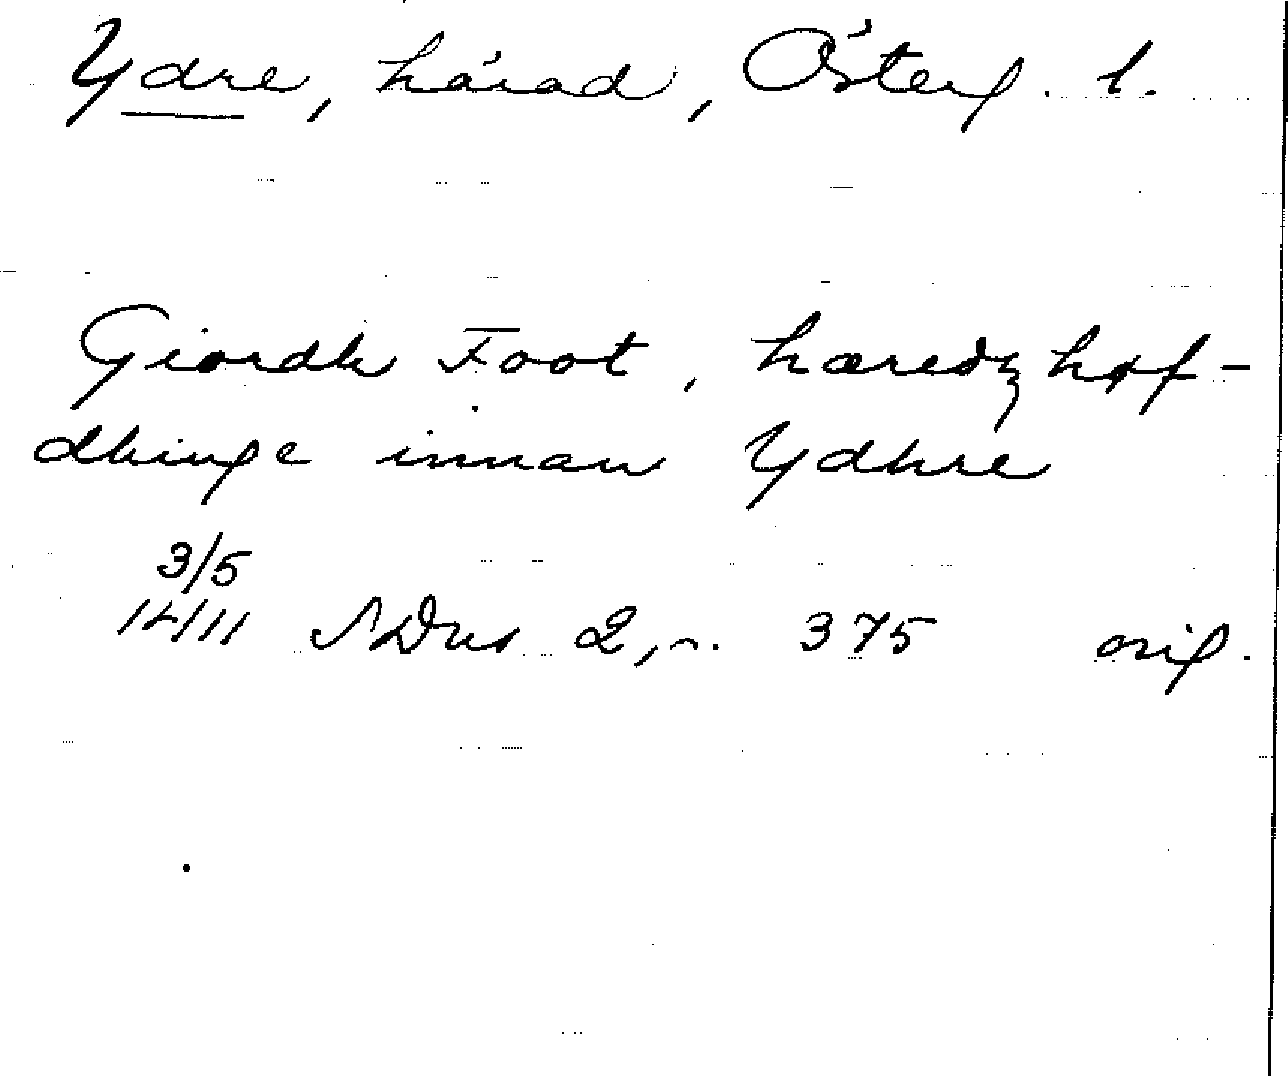 Ydre, härad, Österg. l.
Giordh Foot, hæredzhøf-
dhinge innan Ydhre
3/5
1411 SDns 2, n. 375 orig.